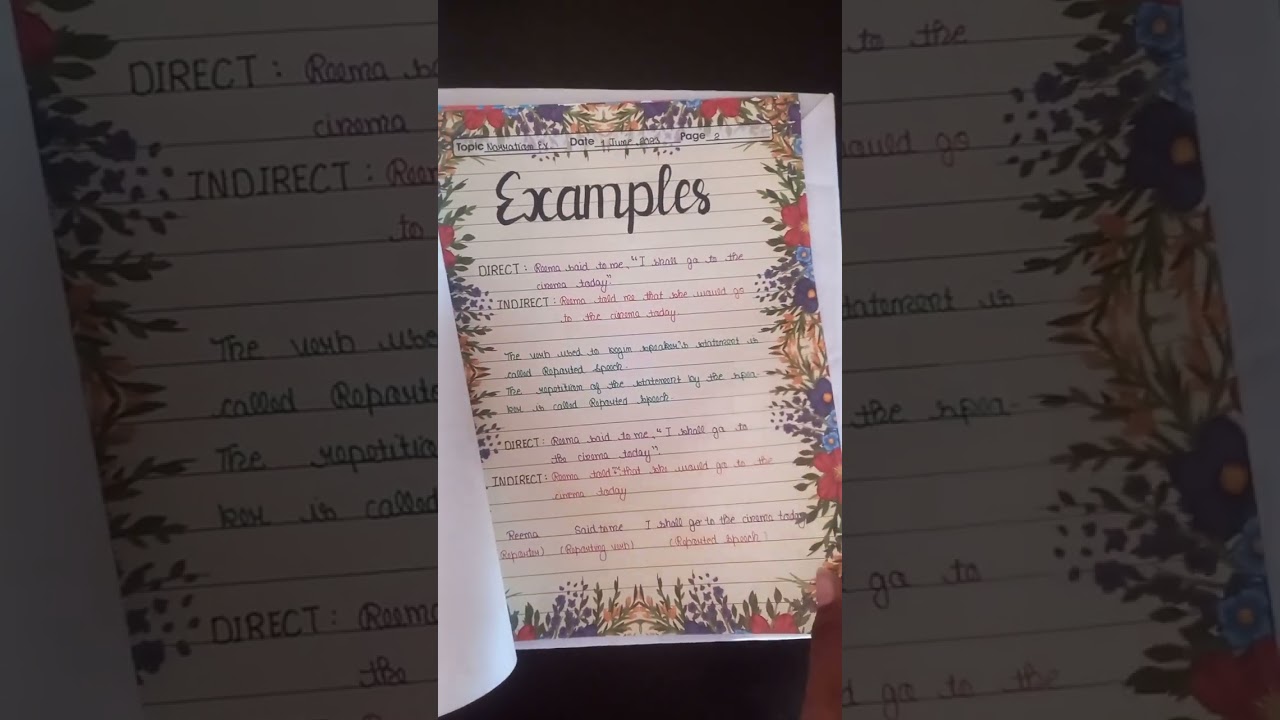 Topic Narration Ex. Date 1 June 2021 Page 2
Examples
DIRECT : Reema said to me, "I shall go to the
cinema today".
INDIRECT : Reema told me that she would go
to the cinema today
The verb used to begin speaker's statement is
called Reported Speech.
The repetition of the statement by the spea-
ker is called Reported Speech.
DIRECT : Reema said to me, "I shall go to
the cinema today".
INDIRECT : Reema told me that she would go to the
cinema today
Reema Said to me I shall go to the cinema today
(Reporter) (Reporting verb) (Reported Speech)